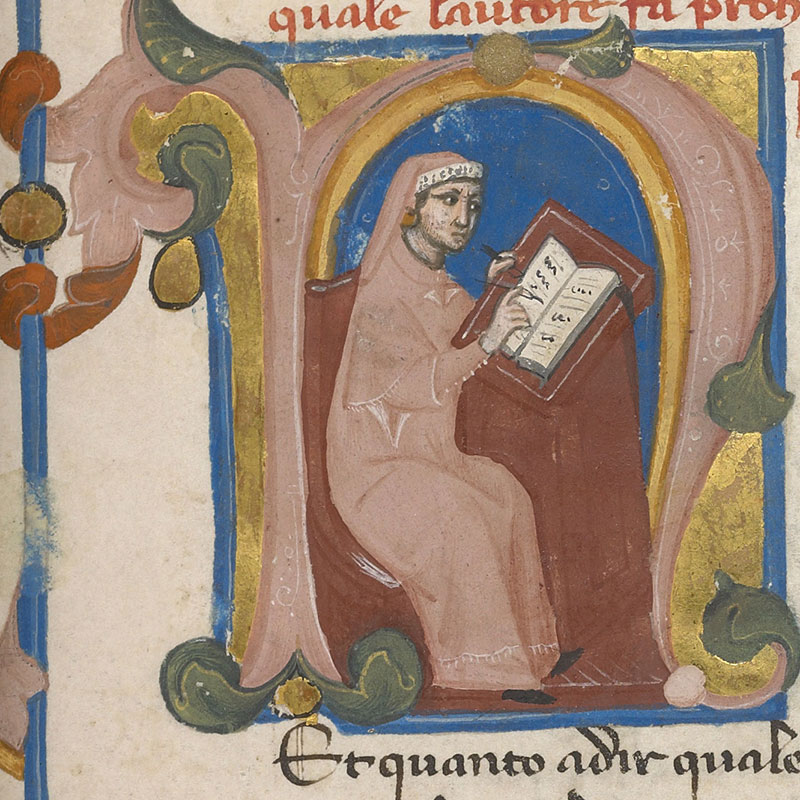 quale lautore fa proh
N
Et quanto a dir quale